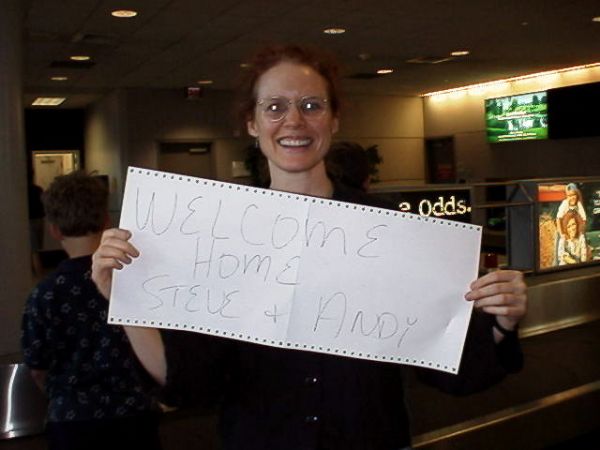 WELCOME
HOME
STEVE + ANDY
e Odds.